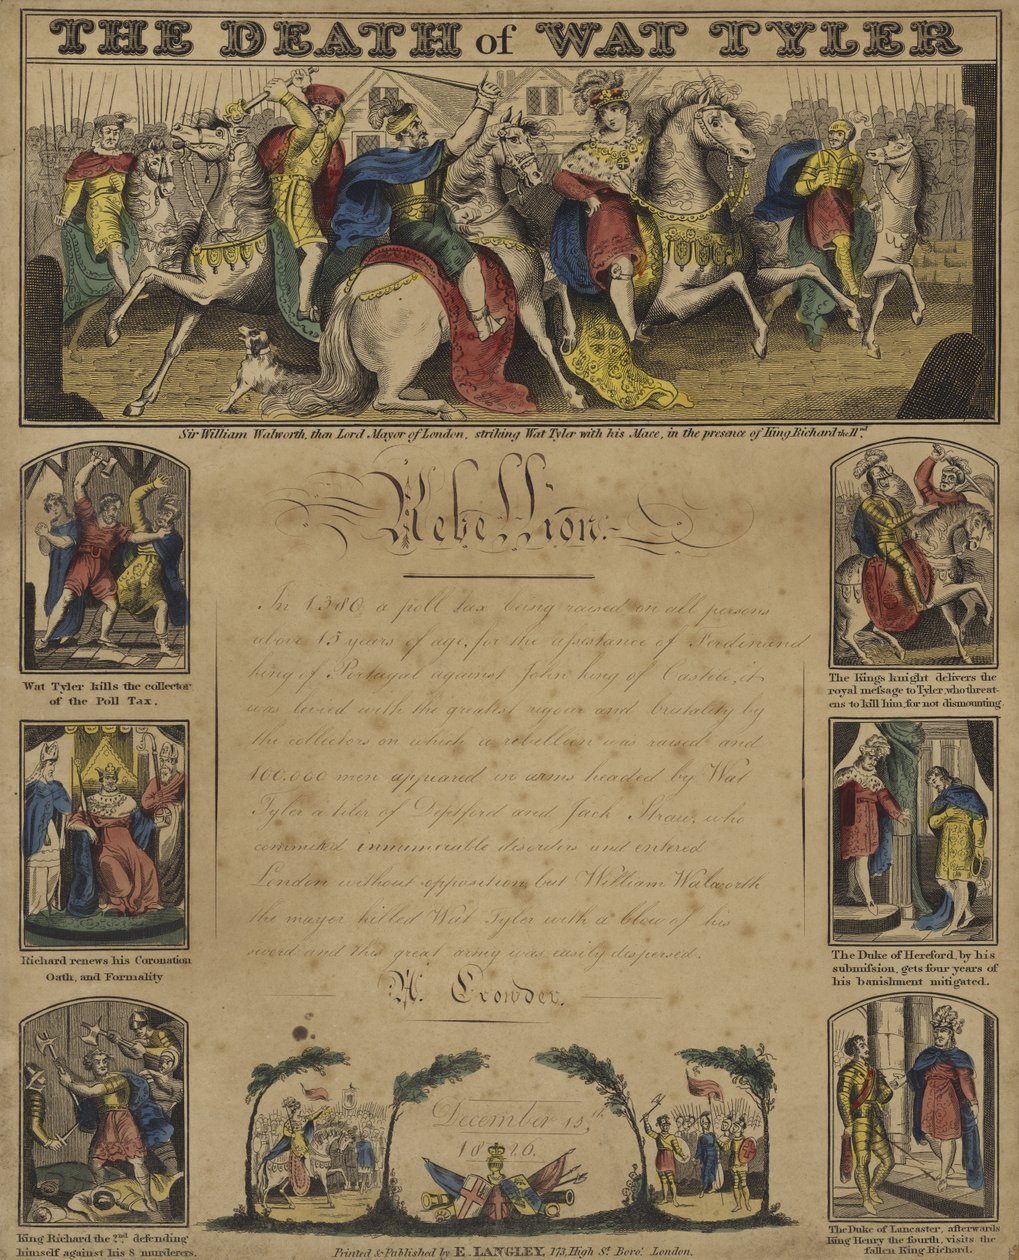 THE DEATH of WAT TYLER
Sir William Walworth, then Lord Mayor of London, striking Wat Tyler with his Mace, in the presence of King Richard the II.nd
Rebellion.
In 1380, a poll tax being raised on all persons
above 15 years of age, for the assistance of Ferdinand
king of Portugal against John king of Castile, it
was levied with the greatest rigour and brutality by
the collectors on which a rebellion was raised and
100.000 men appeared in arms headed by Wat
Tyler a tiler of Deptford and Jack Straw, who
commited innumerable disorders and entered
London without opposition, but William Walworth
the mayor killed Wat Tyler with a blow of his
sword and this great army was easily dispersed.
W. Crowder.
December 15th,
1820.
Wat Tyler kills the collector
of the Poll Tax.
Richard renews his Coronation
Oath, and Formality
King Richard the 2nd defending
himself against his 8 murderers.
The Kings knight delivers the
royal message to Tyler, who threat-
ens to kill him, for not dismounting.
The Duke of Hereford, by his
submission, gets four years of
his banishment mitigated.
The Duke of Lancaster, afterwards
King Henry the fourth, visits the
fallen King Richard.
Printed & Published by E. LANGLEY, 173, High St. Boro'. London.